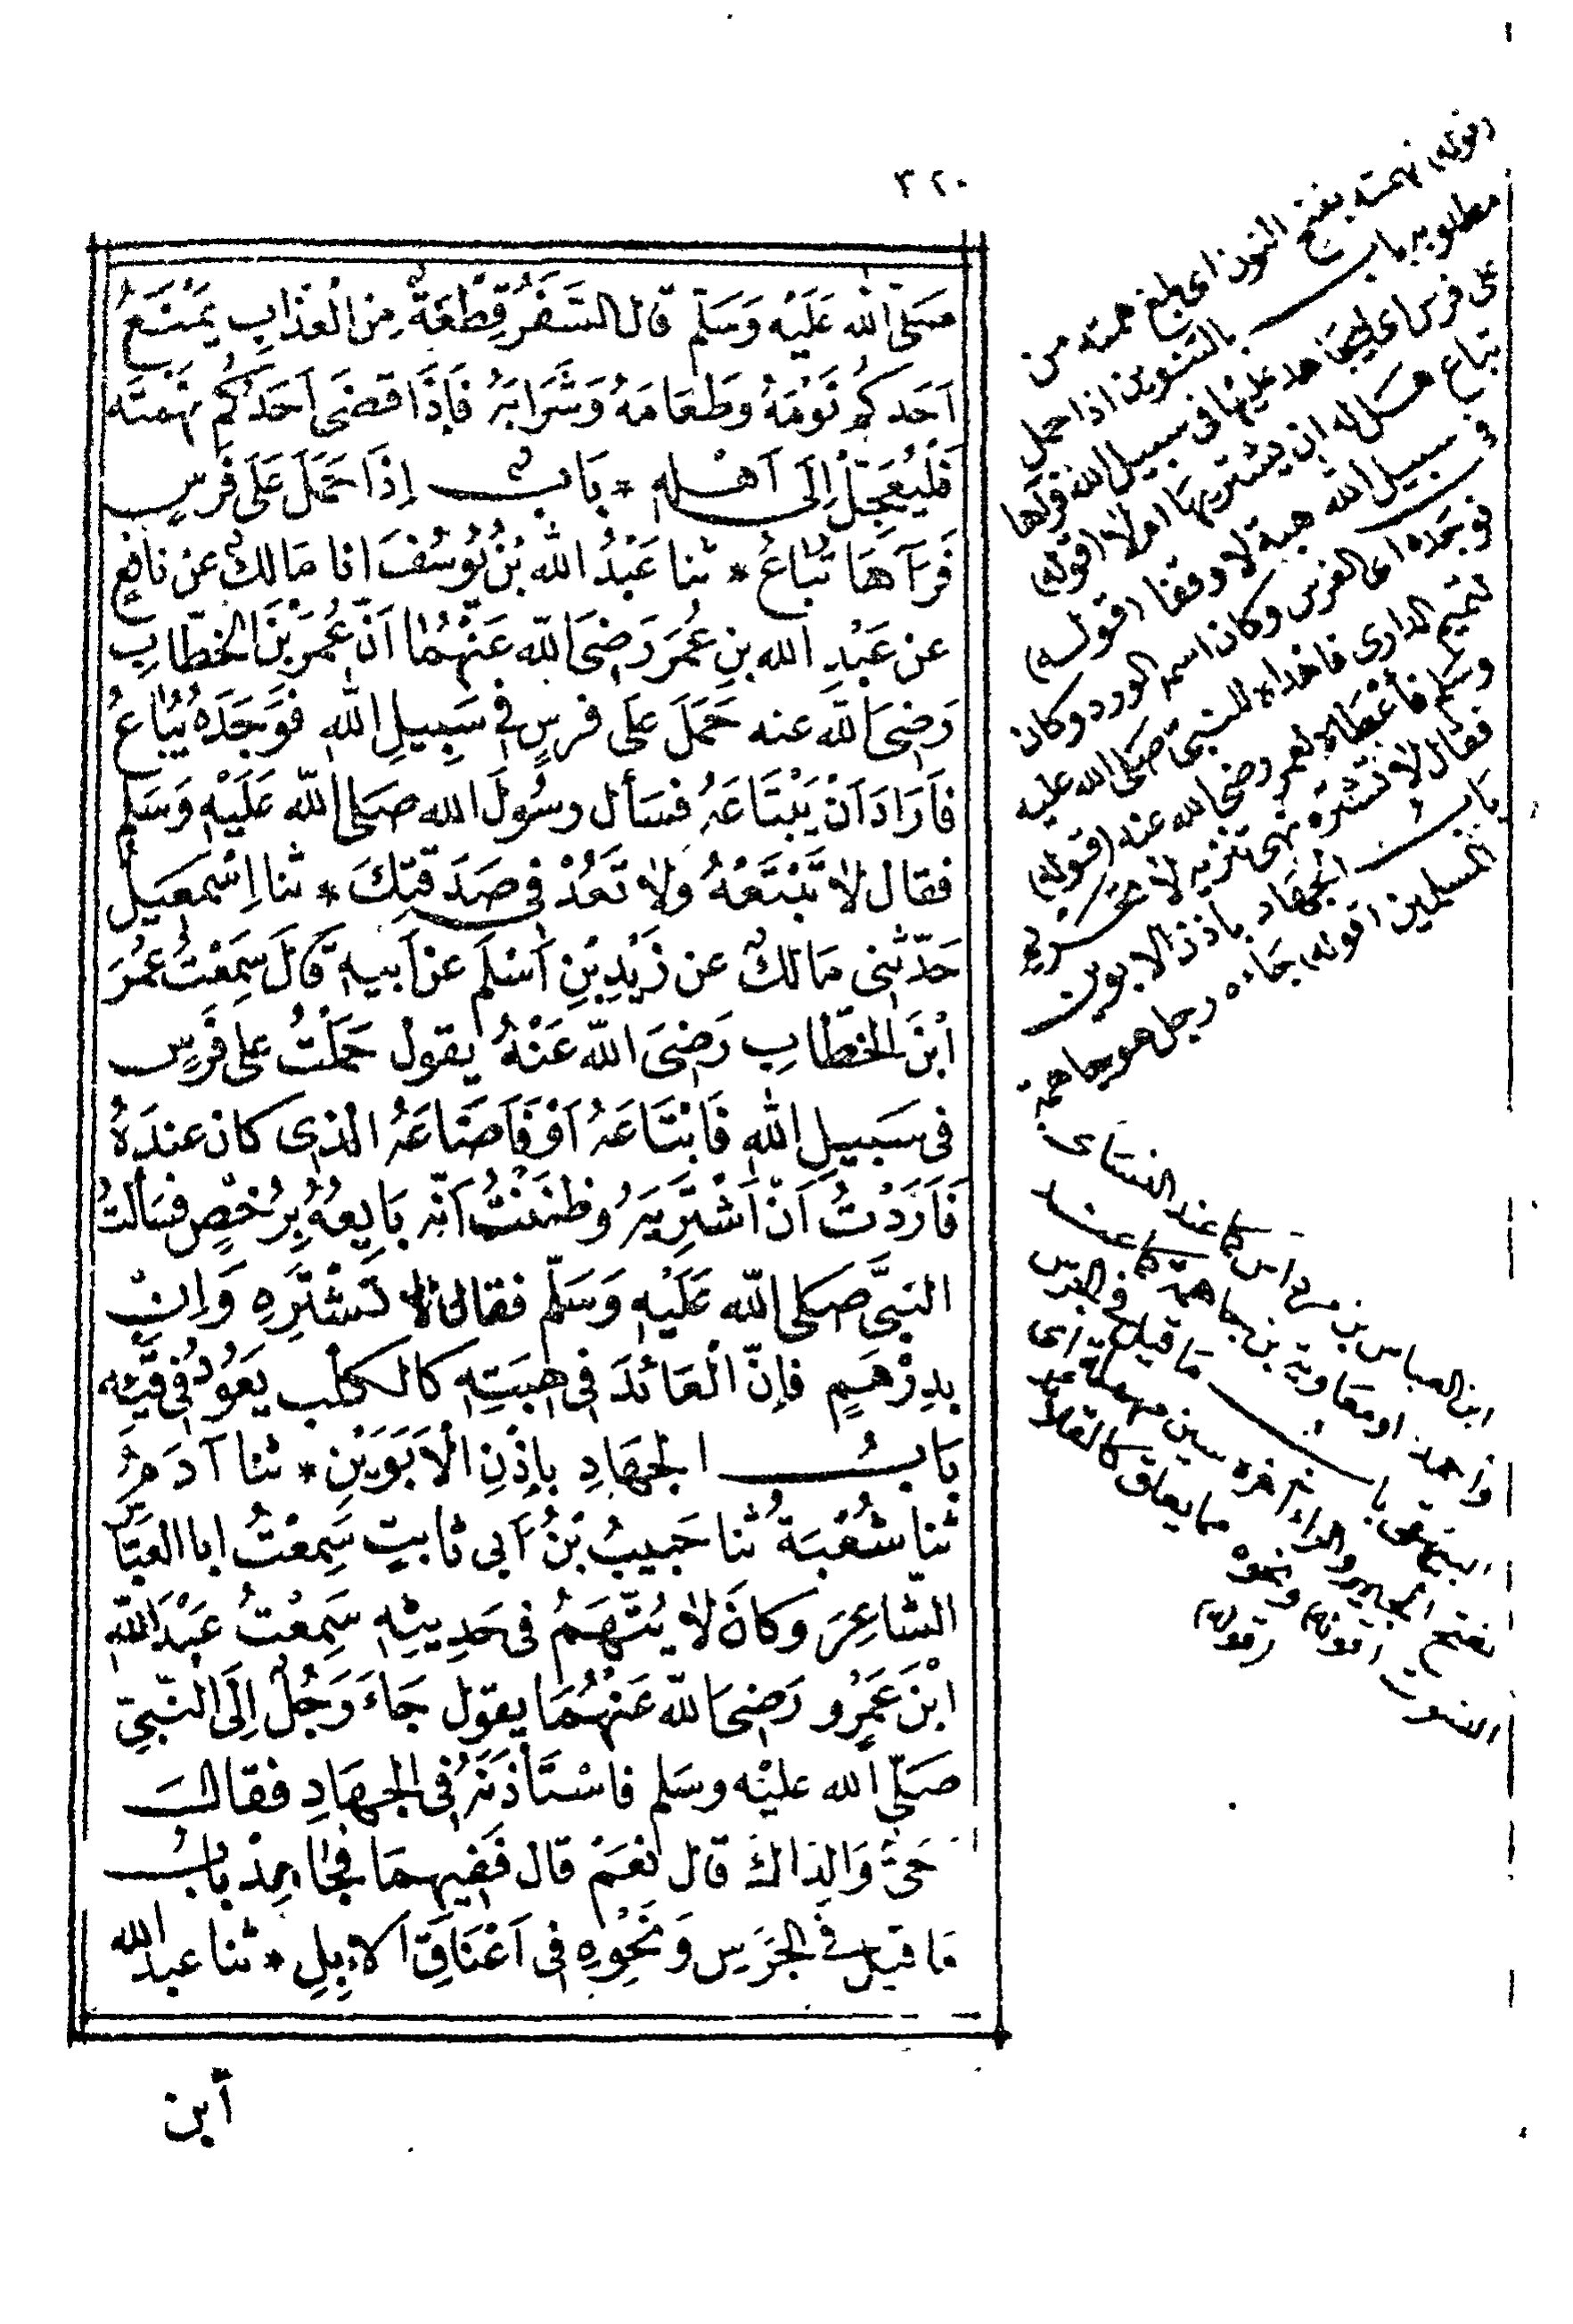 ٣٢٠
صَلَّى اللّٰه عَلَيْه وَسَلَّم قال السَّفَرُ قِطْعَةٌ مِنَ الْعَذَابِ يَمْنَعُ
اَحَدَكُم نَوْمَهُ وَطَعَامَهُ وَشَرَابَهُ فَاِذَا قَضَى اَحَدُكُم نَهْمَتَه
فَلْيُعَجِّلْ اِلَى اَهْلِه * بَابٌ اِذَا حَمَلَ عَلَى فَرَسٍ
فَرَآهَا تُبَاعُ * ثنا عَبْدُ اللّٰه بْنُ يُوسُفَ انا مَالكٌ عَنْ نَافِعٍ
عن عَبْدِ الله بنِ عُمَرَ رَضِىَ اللّه عَنْهُمَا اَنّ عُمَرَ بْنَ الخَطّابِ
رَضِىَ اللّه عنه حَمَلَ عَلَى فرسٍ فى سَبِيلِ اللّٰهِ فَوَجَدَهُ يُبَاعُ
فَاَرَادَ اَنْ يَبْتَاعَهُ فسَأل رسُولَ الله صَلى اللّه عَلَيْهِ وَسَلم
فقال لا تَبْتَعْهُ ولا تَعُدْ فى صَدَقَتِكَ * ثنا اِسْمعِيلُ
حَدّثنى مَالكٌ عن زَيْدِ بْنِ اَسْلَم عن اَبيهِ قَالَ سَمِعْتُ عُمَرَ
ابْنَ الخَطّابِ رَضِىَ اللّه عَنْهُ يقول حَمَلْتُ على فَرَسٍ
فى سَبِيلِ اللّٰهِ فَابْتَاعَهُ اَوْ فَاَضَاعَهُ الذى كان عندَهُ
فَاَرَدْتُ اَنْ اَشْتَرِيَهُ وظنَنْتُ اَنّه بَايِعُهُ بِرُخْصٍ فسَألتُ
النبىَّ صَلى اللّه عَلَيْهِ وَسَلّم فقال لا تَشْتَرِهِ وَاِنْ
بِدِرْهَمٍ فاِنّ الْعَائدَ فى هِبَتِهِ كالكلْب يَعُوْدُ فى قَيْئِه
بَابُ الجهَادِ بِاِذْنِ الْاَبَوَيْنِ * ثنا آدَمُ
ثنا شُعْبَةُ ثنا حَبيبُ بْنُ اَبى ثابتٍ سَمِعْتُ ابا العَبّاسِ
الشّاعِرَ وكانَ لا يُتَّهَمُ فى حَدِيثِهِ سَمِعْتُ عَبْدَ اللّه
ابْنَ عَمْرٍو رَضِىَ اللّه عَنْهُمَا يقول جَاءَ رَجُلٌ اِلَى النّبىِّ
صَلّى الله عليْه وسَلم فاسْتَأذَنَهُ فى الجهَادِ فقالَ
اَحَىٌّ وَالِدَاكَ قال نعَمْ قال فَفِيهِمَا فجَاهِدْ بابُ
مَا قيل فى الجَرَسِ وَنَحْوِهِ فى اَعْنَاقِ الاِبِلِ * ثنا عبد الله
ابن
(قوله) نهمته بفتح النون اى بلغ همته من
مطلوبه باب بالتنوين اذا حمل
على فرس اى ليجاهد عليها فى سبيل الله فرآها
تباع هل له ان يشتريها ام لا (قوله)
فى سبيل الله هبة لا وقفا (قوله)
فوجده اى الفرس وكان اسمه الورد وكان
لتميم الدارى فاهداه للنبى صلى الله عليه
وسلم فأعطاه لعمر رضى الله عنه (قوله)
فقال لا تشتره نهى تنزيه لا
باب الجهاد باذن الابوين
المسلمين (قوله) جاءه رجل هو جاهمة
ابن العباس بن مرداس كما عند النسائى
او معاوية بن جاهمة كما عند
البيهقى باب ما قيل فى الجرس
بفتح الجيم والراء اخره سين مهملة اى
الصوت (قوله) ونحوه مما يعلق كالقلائد
(قوله)